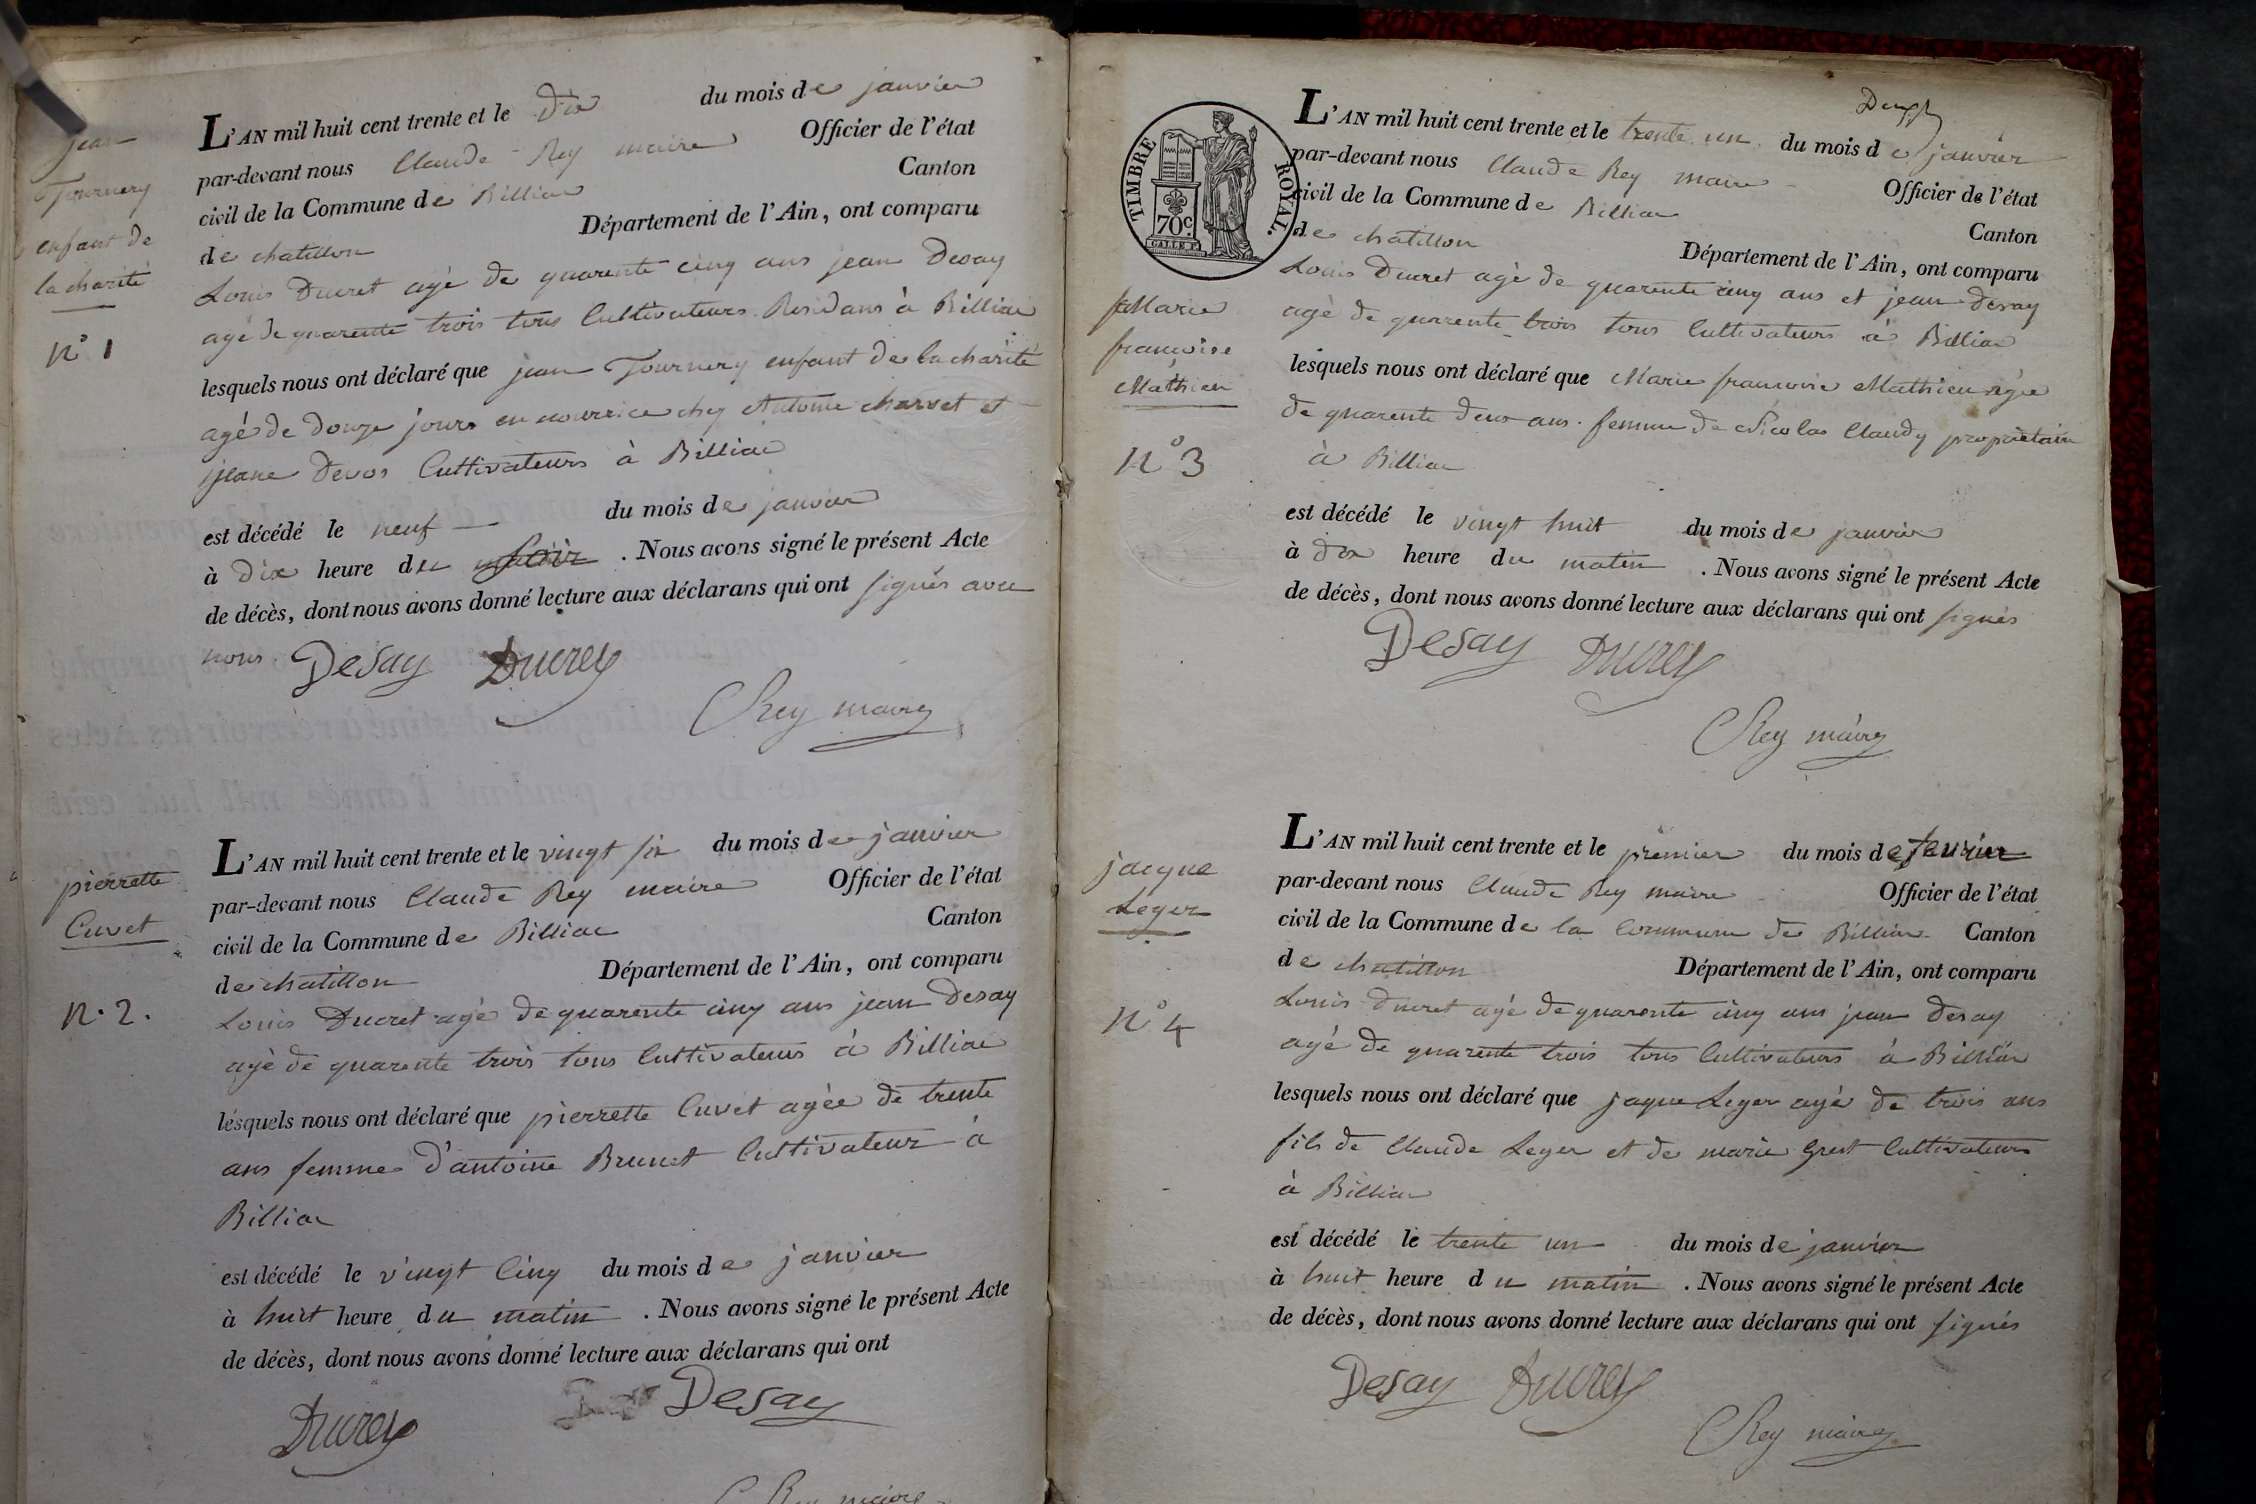 jean
Tournery
enfant de
la charité
n° 1
L'AN mil huit cent trente et le dix du mois de janvier
par-devant nous Claude Rey maire Officier de l'état
civil de la Commune de Billiac Canton
de chatillon Département de l'Ain, ont comparu
Louis Ducret agé de quarente cinq ans jean Desay
agé de quarente trois tous Cultivateurs Residans à Billiac
lesquels nous ont déclaré que jean Tournery enfant de la charité
agé de douze jours en nourrice chez Antoine charvet et
jeane Devos Cultivateurs à Billiac
est décédé le neuf du mois de janvier
à dix heure du soir . Nous avons signé le présent Acte
de décès, dont nous avons donné lecture aux déclarans qui ont signés avec
nous.
Desay Ducrey
C Rey maire
pierrette
Cuvet
n. 2.
L'AN mil huit cent trente et le vingt six du mois de janvier
par-devant nous Claude Rey maire Officier de l'état
civil de la Commune de Billiac Canton
de chatillon Département de l'Ain, ont comparu
Louis Ducret agé de quarente cinq ans jean Desay
agé de quarente trois tous Cultivateurs à Billiac
lesquels nous ont déclaré que pierrette Cuvet agée de trente
ans femme d'antoine Brunet Cultivateur à
Billiac
est décédé le vingt Cinq du mois de janvier
à huit heure du matin . Nous avons signé le présent Acte
de décès, dont nous avons donné lecture aux déclarans qui ont
Ducrey Desay
C Rey maire
TIMBRE ROYAL.
70c.
Marie
françoise
Mathieu
n° 3
L'AN mil huit cent trente et le trente un du mois de janvier
par-devant nous Claude Rey maire Officier de l'état
civil de la Commune de Billiac Canton
de chatillon Département de l'Ain, ont comparu
Louis Ducret agé de quarente cinq ans et jean desay
agé de quarente trois tous Cultivateurs à Billiac
lesquels nous ont déclaré que Marie francoise Mathieu agée
de quarente deux ans. femme de Nicolas Claudy propriétaire
à Billiac
est décédé le vingt huit du mois de janvier
à dix heure du matin . Nous avons signé le présent Acte
de décès, dont nous avons donné lecture aux déclarans qui ont signés
Desay Ducrey
C Rey maire
jacque
Leger
n° 4
L'AN mil huit cent trente et le premier du mois de fevrier
par-devant nous Claude Rey maire Officier de l'état
civil de la Commune de la Commune de Billiac Canton
de chatillon Département de l'Ain, ont comparu
Louis ducret agé de quarente cinq ans jean desay
agé de quarente trois tous Cultivateurs à Billiac
lesquels nous ont déclaré que jaque Leger agé de trois ans
fils de Claude Leger et de marie Cultivateurs
à Billiac
est décédé le trente un du mois de janvier
à huit heure du matin . Nous avons signé le présent Acte
de décès, dont nous avons donné lecture aux déclarans qui ont signés
Desay Ducrey
C Rey maire